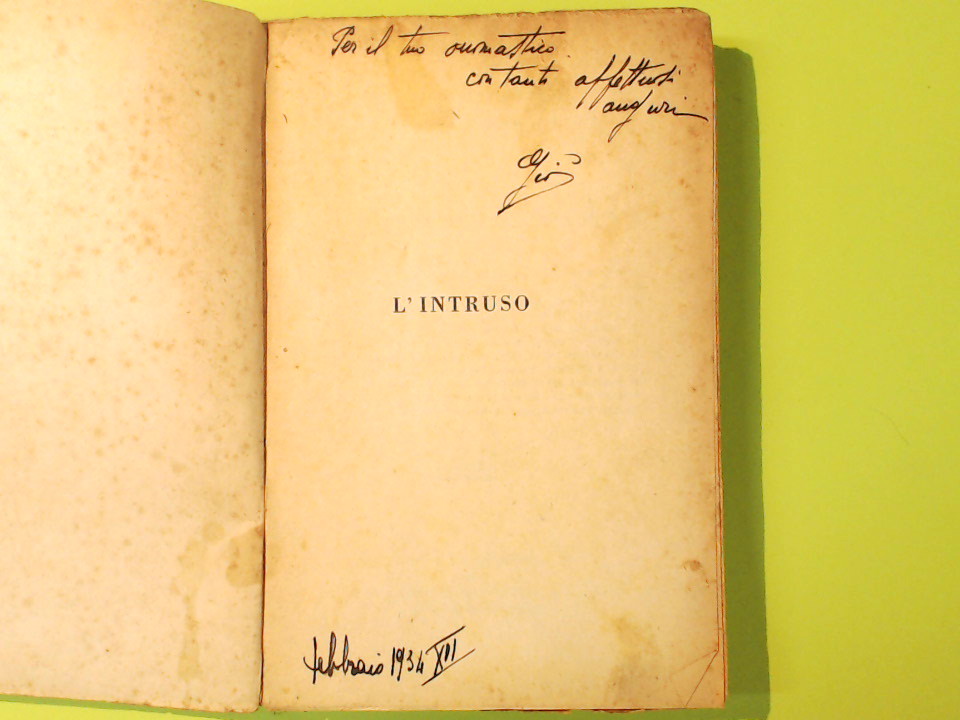 Per il tuo onomastico
con tanti affettuosi
auguri
Giò
L'INTRUSO
febbraio 1934 XII